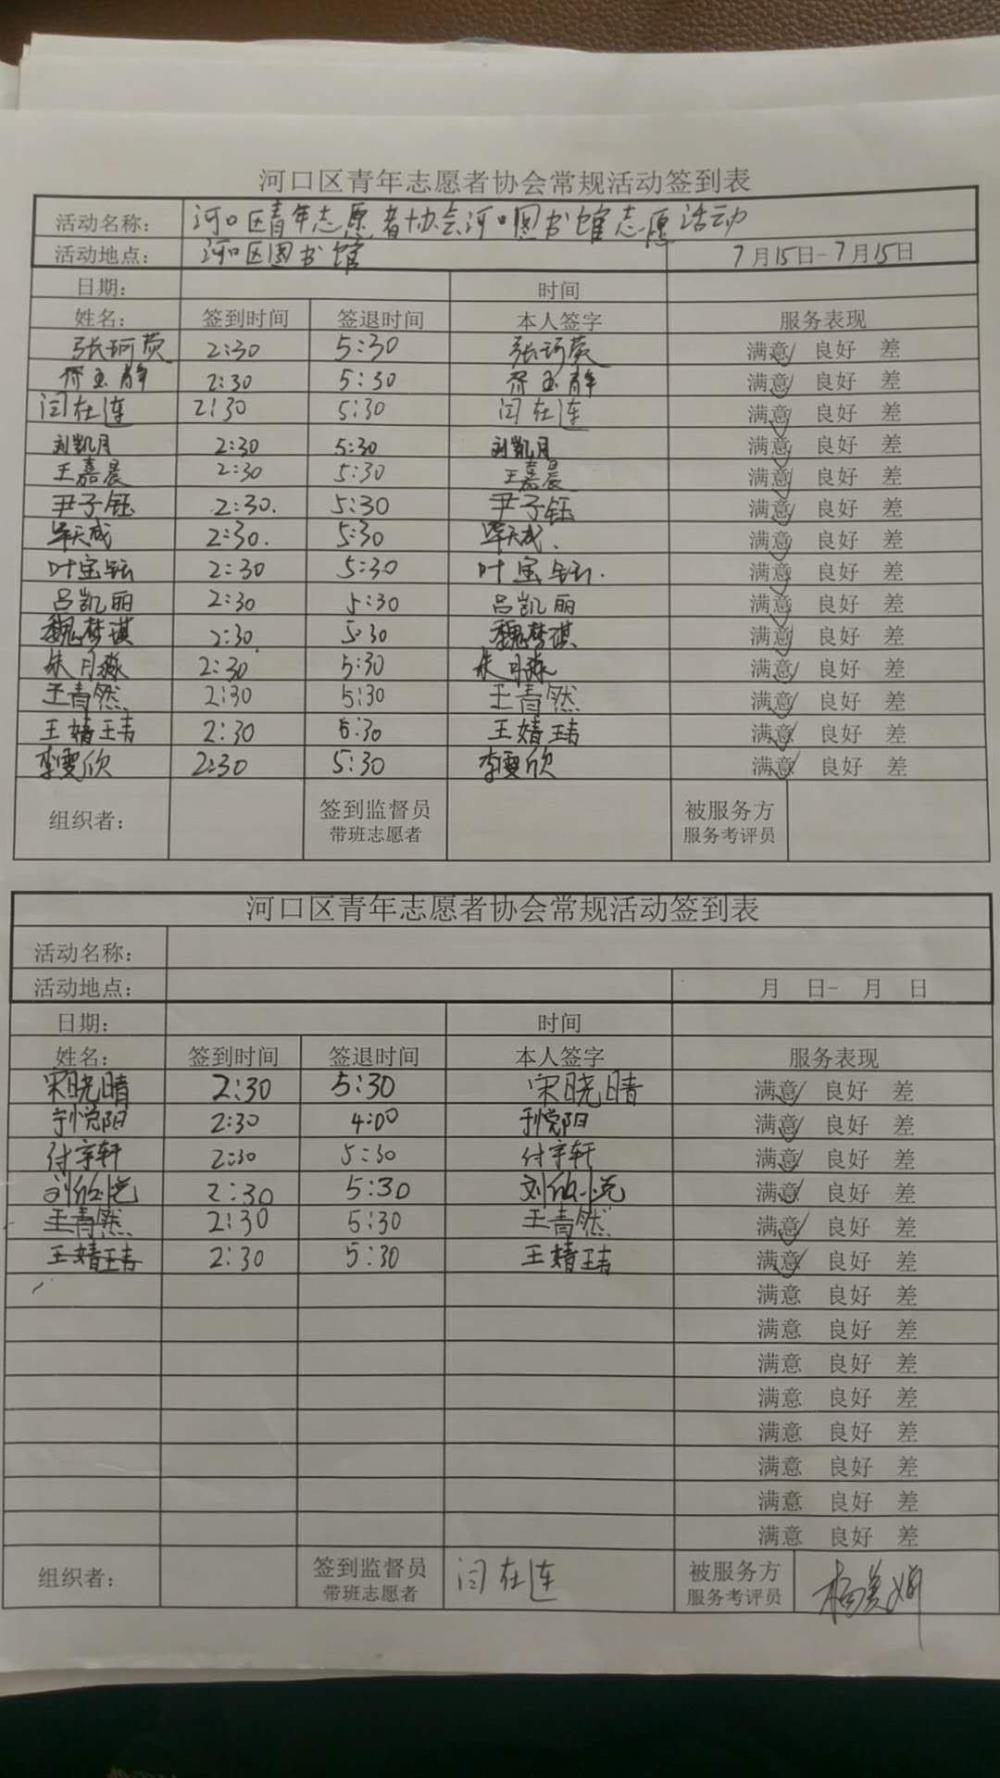 河口区青年志愿者协会常规活动签到表
活动名称: 河口区青年志愿者协会河口图书馆志愿活动
活动地点: 河口区图书馆 7月15日-7月15日
日期: 时间
姓名: 签到时间 签退时间 本人签字 服务表现
张珂荧 2:30 5:30 张珂荧 满意 良好 差
2:30 5:30 满意 良好 差
闫在连 2:30 5:30 闫在连 满意 良好 差
刘凯月 2:30 5:30 刘凯月 满意 良好 差
王嘉晨 2:30 5:30 王嘉晨 满意 良好 差
尹子钰 2:30. 5:30 尹子钰 满意 良好 差
毕天成 2:30. 5:30 毕天成. 满意 良好 差
叶宝钰 2:30 5:30 叶宝钰. 满意 良好 差
吕凯丽 2:30 5:30 吕凯丽 满意 良好 差
魏梦琪 2:30 5:30 魏梦琪 满意 良好 差
朱月淼 2:30 5:30 朱月淼 满意 良好 差
王青然 2:30 5:30 王青然 满意 良好 差
王婧玮 2:30 5:30 王婧玮 满意 良好 差
李雯欣 2:30 5:30 李雯欣 满意 良好 差
组织者: 签到监督员 带班志愿者 被服务方 服务考评员
河口区青年志愿者协会常规活动签到表
活动名称:
活动地点: 月 日- 月 日
日期: 时间
姓名: 签到时间 签退时间 本人签字 服务表现
宋晓晴 2:30 5:30 宋晓晴 满意 良好 差
2:30 4:00 满意 良好 差
付宇轩 2:30 5:30 付宇轩 满意 良好 差
2:30 5:30 满意 良好 差
王青然 2:30 5:30 王青然 满意 良好 差
王婧玮 2:30 5:30 王婧玮 满意 良好 差
满意 良好 差
满意 良好 差
满意 良好 差
满意 良好 差
满意 良好 差
满意 良好 差
满意 良好 差
满意 良好 差
组织者: 签到监督员 带班志愿者 闫在连 被服务方 服务考评员 杨美娟